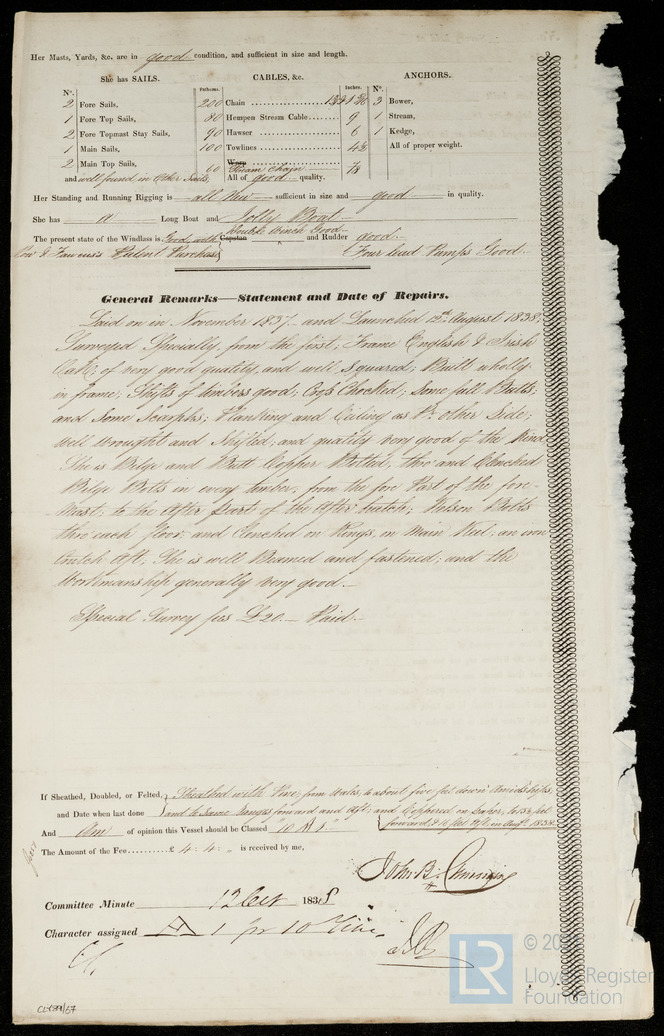 Her Masts, Yards, &c. are in good condition, and sufficient in size and length.
She has SAILS. CABLES, &c. ANCHORS.
Nº. Fathoms. Inches. Nº.
2 Fore Sails, 200 Chain 3 Bower,
1 Fore Top Sails, 80 Hempen Stream Cable 9 1 Stream,
2 Fore Topmast Stay Sails, 90 Hawser 6 1 Kedge,
1 Main Sails, 100 Towlines All of proper weight.
2 Main Top Sails, 60 Warp Stream Chain 7/8
and well found in Other Sails, All of good quality.
Her Standing and Running Rigging is all New sufficient in size and good in quality.
She has a Long Boat and Jolly Boat
Double Winch Good
The present state of the Windlass is Good, with Capstan and Rudder good.
Patent Purchase Four lead Pumps Good.
General Remarks—Statement and Date of Repairs.
Laid on in November 1837 and Launched August 1838;
Surveyed Specially, from the first; Frame English & Irish
Oak; of very good quality, and well squared; Built wholly
in frame; Shifts of timbers good; Cross Chocked; Some full Butts;
and Some Scarphs; Planking and Ceiling as Pr. other Side;
Well Wrought and Shifted; and quality very good of the Kind
She is Bilge and Butt Copper Bolted, thro and Clenched
Bilge Bolts in every timber, from the fore Part of the fore-
Mast; to the After part of the After hatch; Kelson Bolts
thro each floor; and Clenched on Rings, in Main Keel; an iron
Crutch Aft; She is well Beamed and fastened; and the
Workmanship generally very good.
Special Survey fees £20.— Paid.
If Sheathed, Doubled, or Felted, Sheathed with Pine, from Wales, to about five feet down Amidships;
and Date when last done and to same Ranges forward and Aft; and Coppered on
forward & 14 feet Aft. in Augt. 1838.
And Am of opinion this Vessel should be Classed "10 A 1"
The Amount of the Fee £4 : 4 : „ is received by me,
John B. Cumming
Committee Minute 12 Oct 1838
Character assigned A 1 for 10 Years
CLY89/57
LR
Lloyd's Register
Foundation